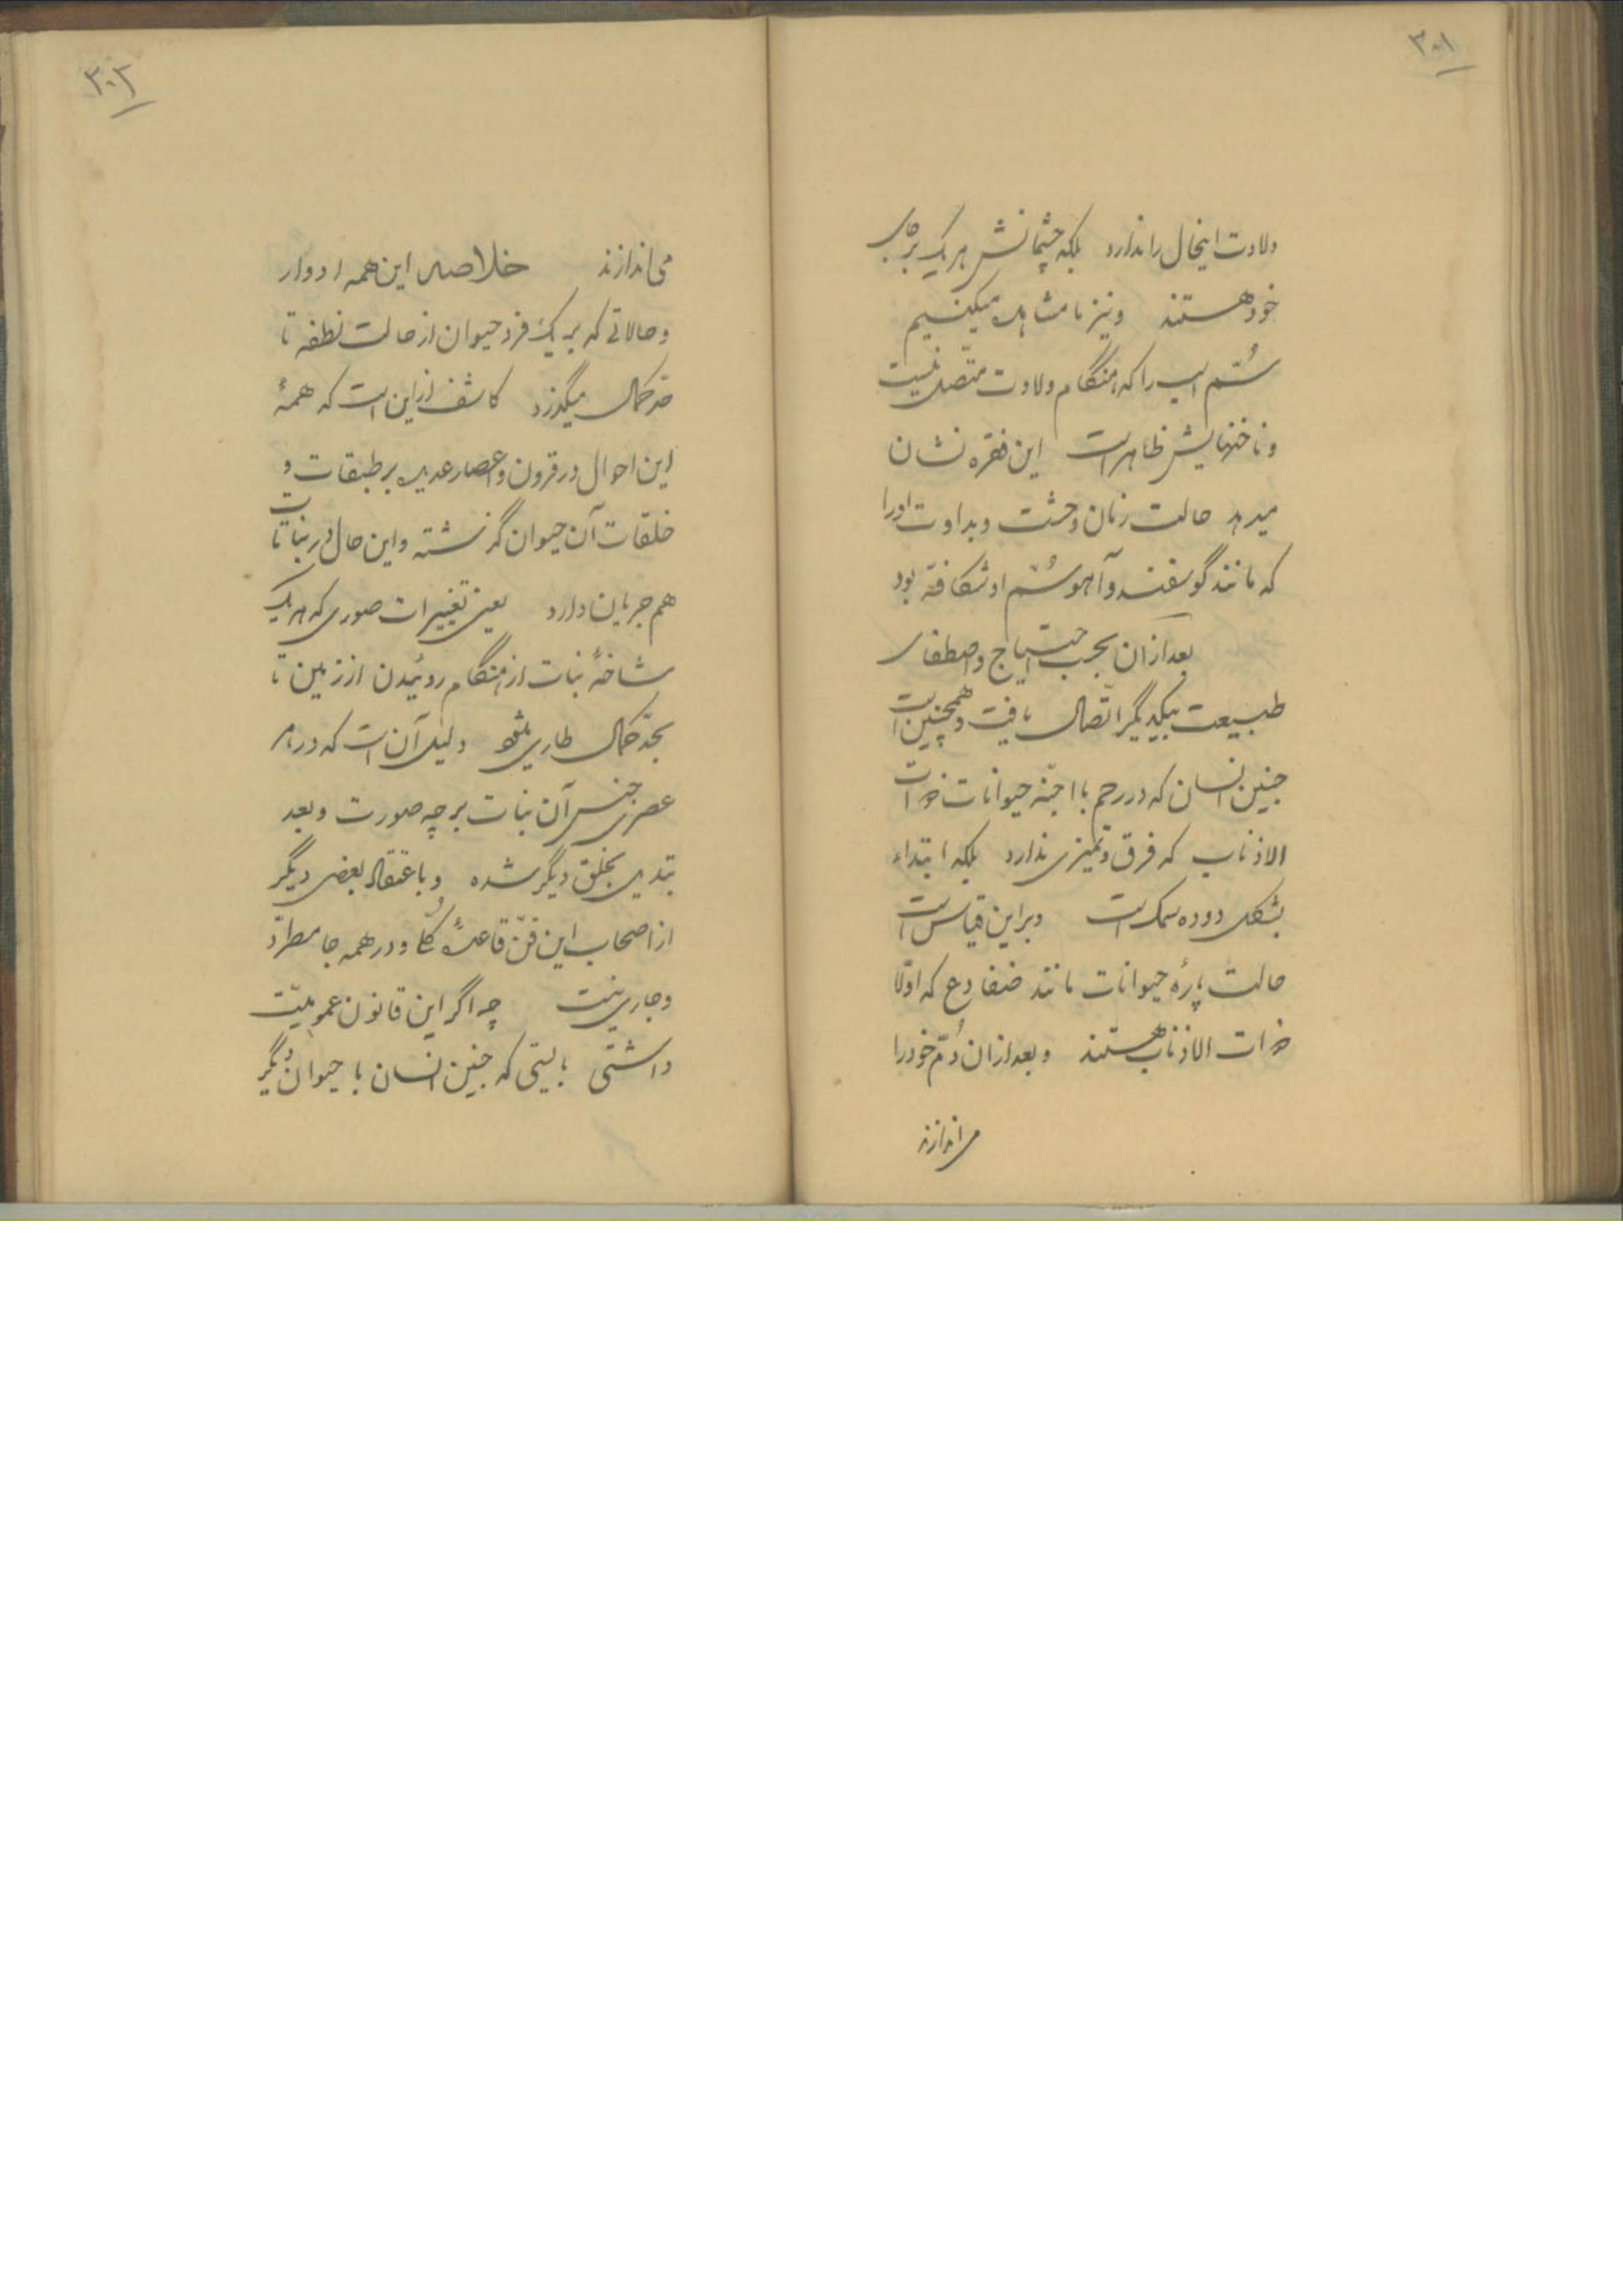 ۳۰۱
ولادت اینحال را ندارد بلکه چشمانش هریک بر جای
خود هستند و نیز ما مشاهده میکنیم
سُم اسب را که هنگام ولادت متصل نیست
و ناخنهایش ظاهر است این فقره نشان
میدهد حالت زمان وحشت و بداوت او را
که مانند گوسفند و آهو سُم او شکافته بود
بعد ازان بحسب احتیاج و اصطفای
طبیعت بیکدیگر اتّصال یافت و همچنین است
جنین انسان که در رحم با اجنّه حیوانات ذوات
الاذناب که فرق و تمیزی ندارد بلکه ابتداء
بشکل دوده سمک است و براین قیاس است
حالت پارهٔ حیوانات مانند ضفادع که اوّلا
ذوات الاذناب هستند و بعد ازان دُم خود را
می اندازند
۳۰۲
می اندازند خلاصه این همه ادوار
و حالاتی که بر یک فرد حیوان از حالت نطفه تا
حدّ کمال میگذرد کاشف از این است که همهٔ
این احوال در قرون و اعصار عدیده بر طبقات و
خلقات آن حیوان گذشته و این حال در نباتات
هم جریان دارد یعنی تغییرات صوری که هر یک
شاخهٔ نبات از هنگام روئیدن از زمین تا
بحدّ کمال طاری میشود دلیل آن است که در هر
عصری جنس آن نبات بر چه صورت و بعد
تبدیل بخلق دیگر شده و باعتقاد بعضی دیگر
از اصحاب این فنّ قاعدهٔ کلّی و در همه جا مطرّد
و جاری نیست چه اگر این قانون عمومیّت
داشتی بایستی که جنین انسان با حیوان دیگر